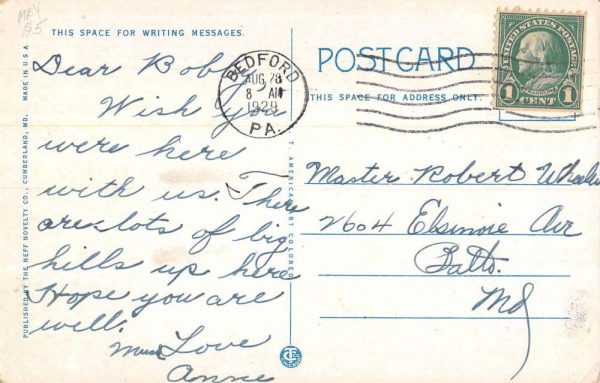 MADE IN U S A
PUBLISHED BY THE NEFF NOVELTY CO., CUMBERLAND, MD.
THIS SPACE FOR WRITING MESSAGES.
Dear Bobby
Wish you
were here
with us. There
are lots of big
hills up here
Hope you are
well.
Much Love
Anne
BEDFORD
AUG 28
8 AM
1929
PA.
POSTCARD
THIS SPACE FOR ADDRESS ONLY.
UNITED STATES POSTAGE
FRANKLIN
1 CENT 1
Master Robert Wheeler
2604 Elsinore Ave
Balto.
Md